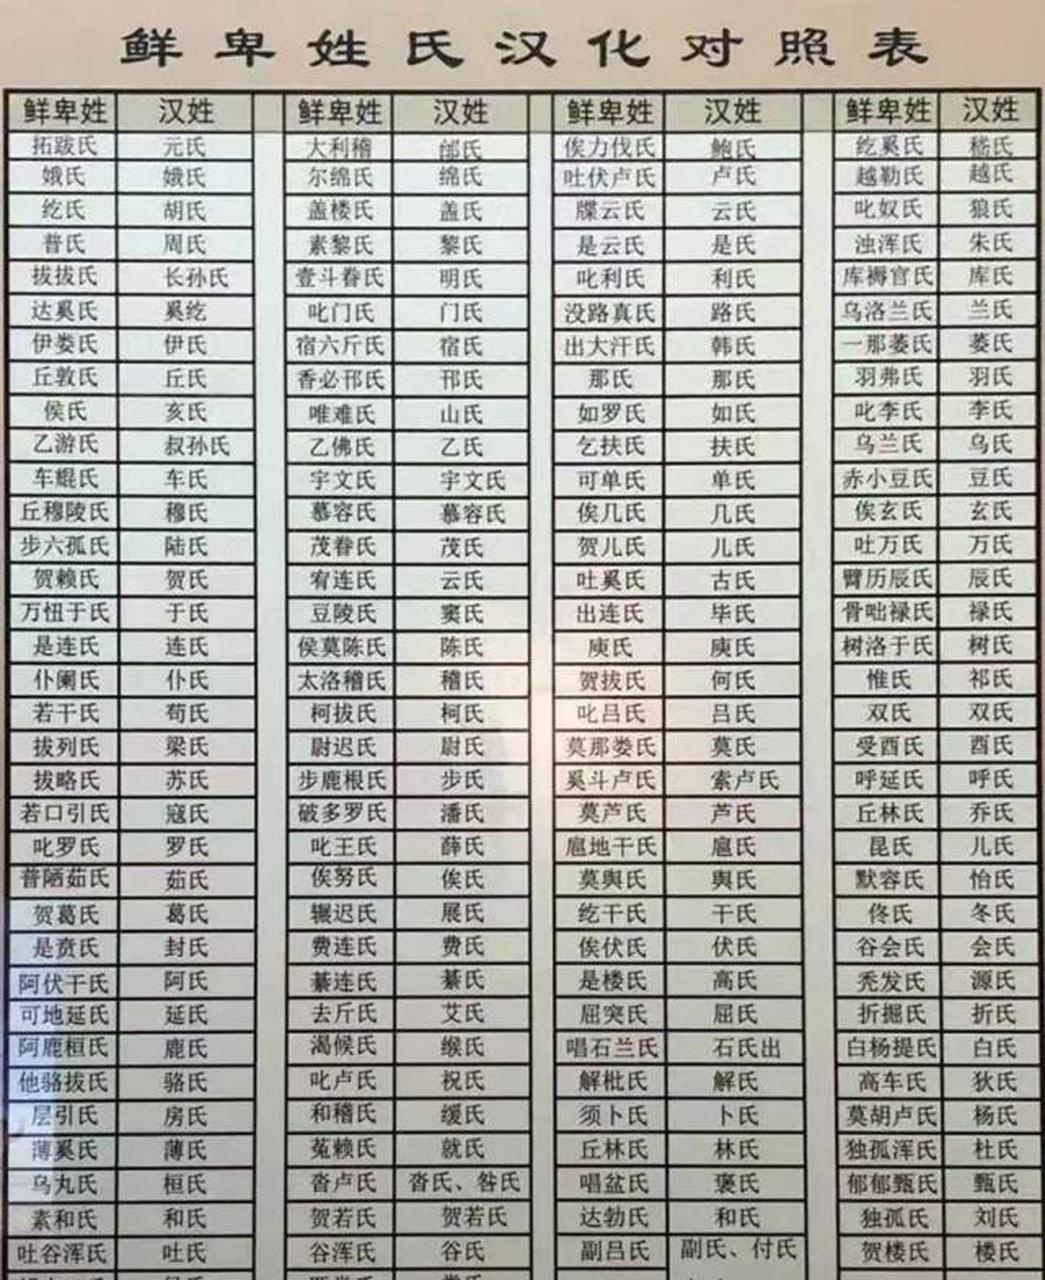 鲜卑姓氏汉化对照表
鲜卑姓 汉姓 鲜卑姓 汉姓 鲜卑姓 汉姓 鲜卑姓 汉姓
拓跋氏 元氏 大利稽 郃氏 俟力伐氏 鲍氏 纥奚氏 嵇氏
娥氏 娥氏 尔绵氏 绵氏 吐伏卢氏 卢氏 越勒氏 越氏
纥氏 胡氏 盖楼氏 盖氏 牒云氏 云氏 叱奴氏 狼氏
普氏 周氏 素黎氏 黎氏 是云氏 是氏 浊浑氏 朱氏
拔拔氏 长孙氏 壹斗眷氏 明氏 叱利氏 利氏 库褥官氏 库氏
达奚氏 奚纥 叱门氏 门氏 没路真氏 路氏 乌洛兰氏 兰氏
伊娄氏 伊氏 宿六斤氏 宿氏 出大汗氏 韩氏 一那蒌氏 蒌氏
丘敦氏 丘氏 香必邘氏 邘氏 那氏 那氏 羽弗氏 羽氏
侯氏 亥氏 唯难氏 山氏 如罗氏 如氏 叱李氏 李氏
乙游氏 叔孙氏 乙佛氏 乙氏 乞扶氏 扶氏 乌兰氏 乌氏
车焜氏 车氏 宇文氏 宇文氏 可单氏 单氏 赤小豆氏 豆氏
丘穆陵氏 穆氏 慕容氏 慕容氏 俟几氏 几氏 俟玄氏 玄氏
步六孤氏 陆氏 茂眷氏 茂氏 贺儿氏 儿氏 吐万氏 万氏
贺赖氏 贺氏 宥连氏 云氏 吐奚氏 古氏 臂历辰氏 辰氏
万忸于氏 于氏 豆陵氏 窦氏 出连氏 毕氏 骨咄禄氏 禄氏
是连氏 连氏 侯莫陈氏 陈氏 庾氏 庾氏 树洛于氏 树氏
仆阑氏 仆氏 太洛稽氏 稽氏 贺拔氏 何氏 惟氏 祁氏
若干氏 苟氏 柯拔氏 柯氏 叱吕氏 吕氏 双氏 双氏
拔列氏 梁氏 尉迟氏 尉氏 莫那娄氏 莫氏 受酉氏 酉氏
拔略氏 苏氏 步鹿根氏 步氏 奚斗卢氏 索卢氏 呼延氏 呼氏
若口引氏 寇氏 破多罗氏 潘氏 莫芦氏 芦氏 丘林氏 乔氏
叱罗氏 罗氏 叱王氏 薛氏 扈地干氏 扈氏 昆氏 儿氏
普陋茹氏 茹氏 俟努氏 俟氏 莫舆氏 舆氏 默容氏 怡氏
贺葛氏 葛氏 辗迟氏 展氏 纥干氏 干氏 佟氏 冬氏
是贲氏 封氏 费连氏 费氏 俟伏氏 伏氏 谷会氏 会氏
阿伏干氏 阿氏 綦连氏 綦氏 是楼氏 高氏 秃发氏 源氏
可地延氏 延氏 去斤氏 艾氏 屈突氏 屈氏 折掘氏 折氏
阿鹿桓氏 鹿氏 渴候氏 缑氏 唱石兰氏 石氏出 白杨提氏 白氏
他骆拔氏 骆氏 叱卢氏 祝氏 解枇氏 解氏 高车氏 狄氏
层引氏 房氏 和稽氏 缓氏 须卜氏 卜氏 莫胡卢氏 杨氏
薄奚氏 薄氏 菟赖氏 就氏 丘林氏 林氏 独孤浑氏 杜氏
乌丸氏 桓氏 沓卢氏 沓氏、昝氏 唱盆氏 褒氏 郁郁甄氏 甄氏
素和氏 和氏 贺若氏 贺若氏 达勃氏 和氏 独孤氏 刘氏
吐谷浑氏 吐氏 谷浑氏 谷氏 副吕氏 副氏、付氏 贺楼氏 楼氏